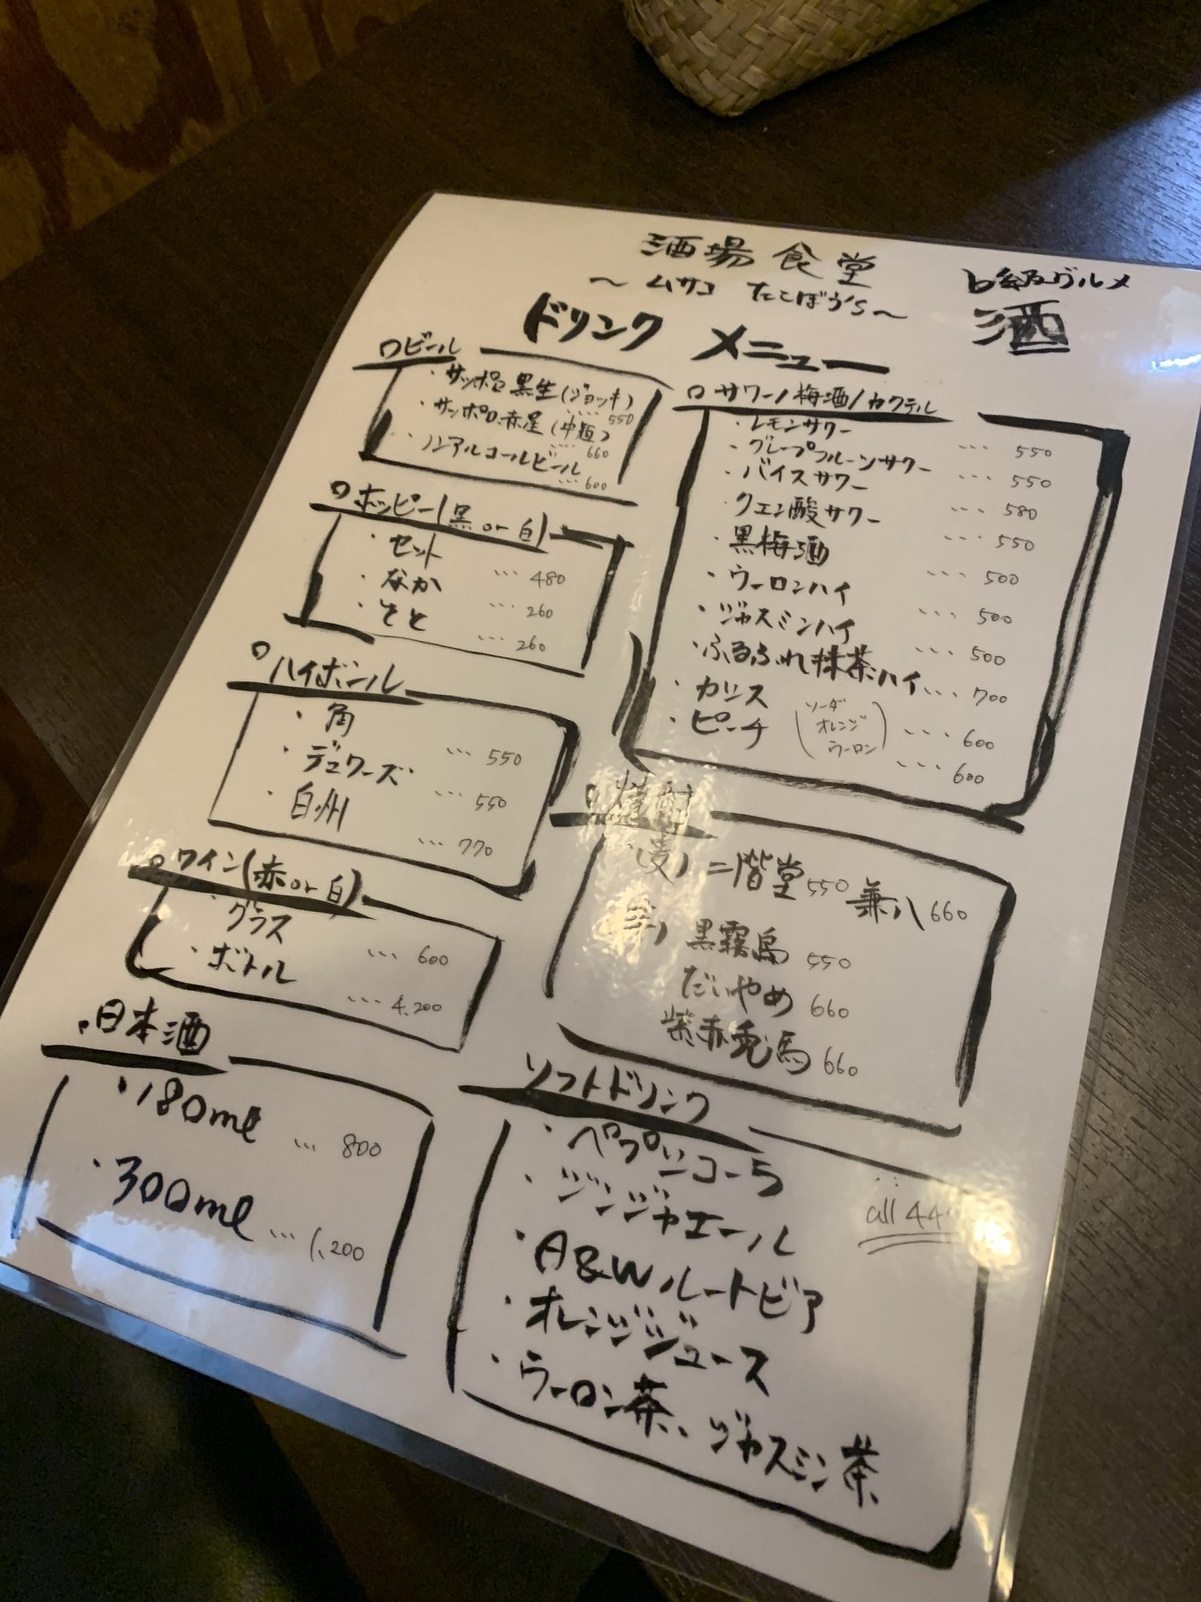 酒場食堂
～ムサコ たこぼう's～
b級グルメ
酒
ドリンク メニュー
ロビール
・サッポロ黒生(ジョッキ)
…550
・サッポロ赤星(中瓶)
…660
・ノンアルコールビール
…600
ロホッピー(黒or白)
・セット …480
・なか …260
・そと …260
ロハイボール
・角 …550
・デュワーズ …550
・白州 …770
ロワイン(赤or白)
・グラス …600
・ボトル …4,200
日本酒
・180ml …800
・300ml …1,200
ロサワー/梅酒/カクテル
・レモンサワー …550
・グレープフルーツサワー …550
・バイスサワー …580
・クエン酸サワー …550
・黒梅酒 …500
・ウーロンハイ …500
・ジャスミンハイ …500
・ふるふれ抹茶ハイ …700
・カシス …600
・ピーチ …600
(ソーダ
オレンジ
ウーロン)
ロ焼酎
麦) 二階堂 550 兼八 660
芋) 黒霧島 550
だいやめ 660
紫赤兎馬 660
ソフトドリンク
・ペプシコーラ
・ジンジャエール
all
・A&Wルートビア
・オレンジジュース
・ウーロン茶、ジャスミン茶